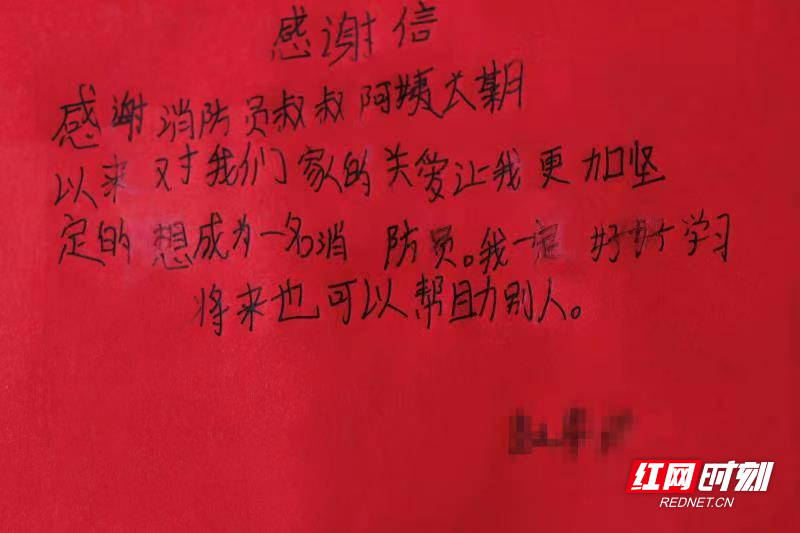 感谢信
感谢消防员叔叔阿姨长期
以来对我们家的关爱让我更加坚
定的想成为一名消防员。我一定好好学习
将来也可以帮助别人。
红网时刻
REDNET.CN